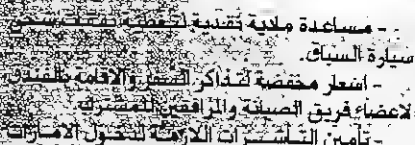 - مساعدة مادية نقدية لتغطية نفقات شحن
سيارة السباق.
- اسعار مخفضة لتذاكر السفر والاقامة بالفندق
لاعضاء فريق الصيانة والمرافقين للمشترك.
- تأمين التأشيرات اللازمة لدخول الامارات